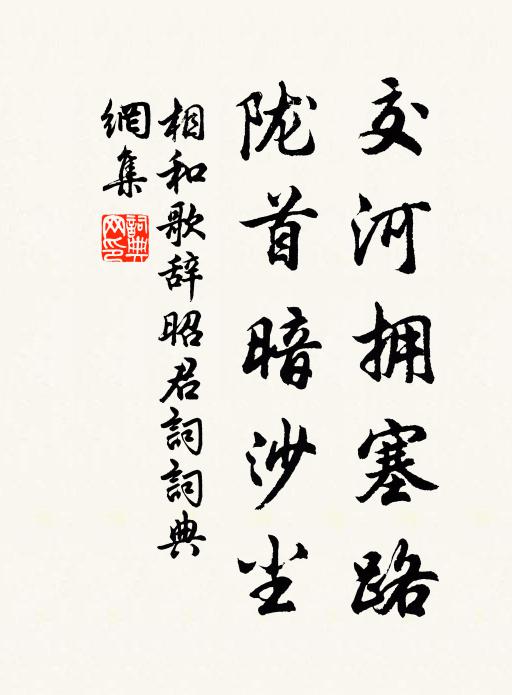 交河拥塞路
陇首暗沙尘
相和歌辞昭君詞詞典
網集
詞典
网印